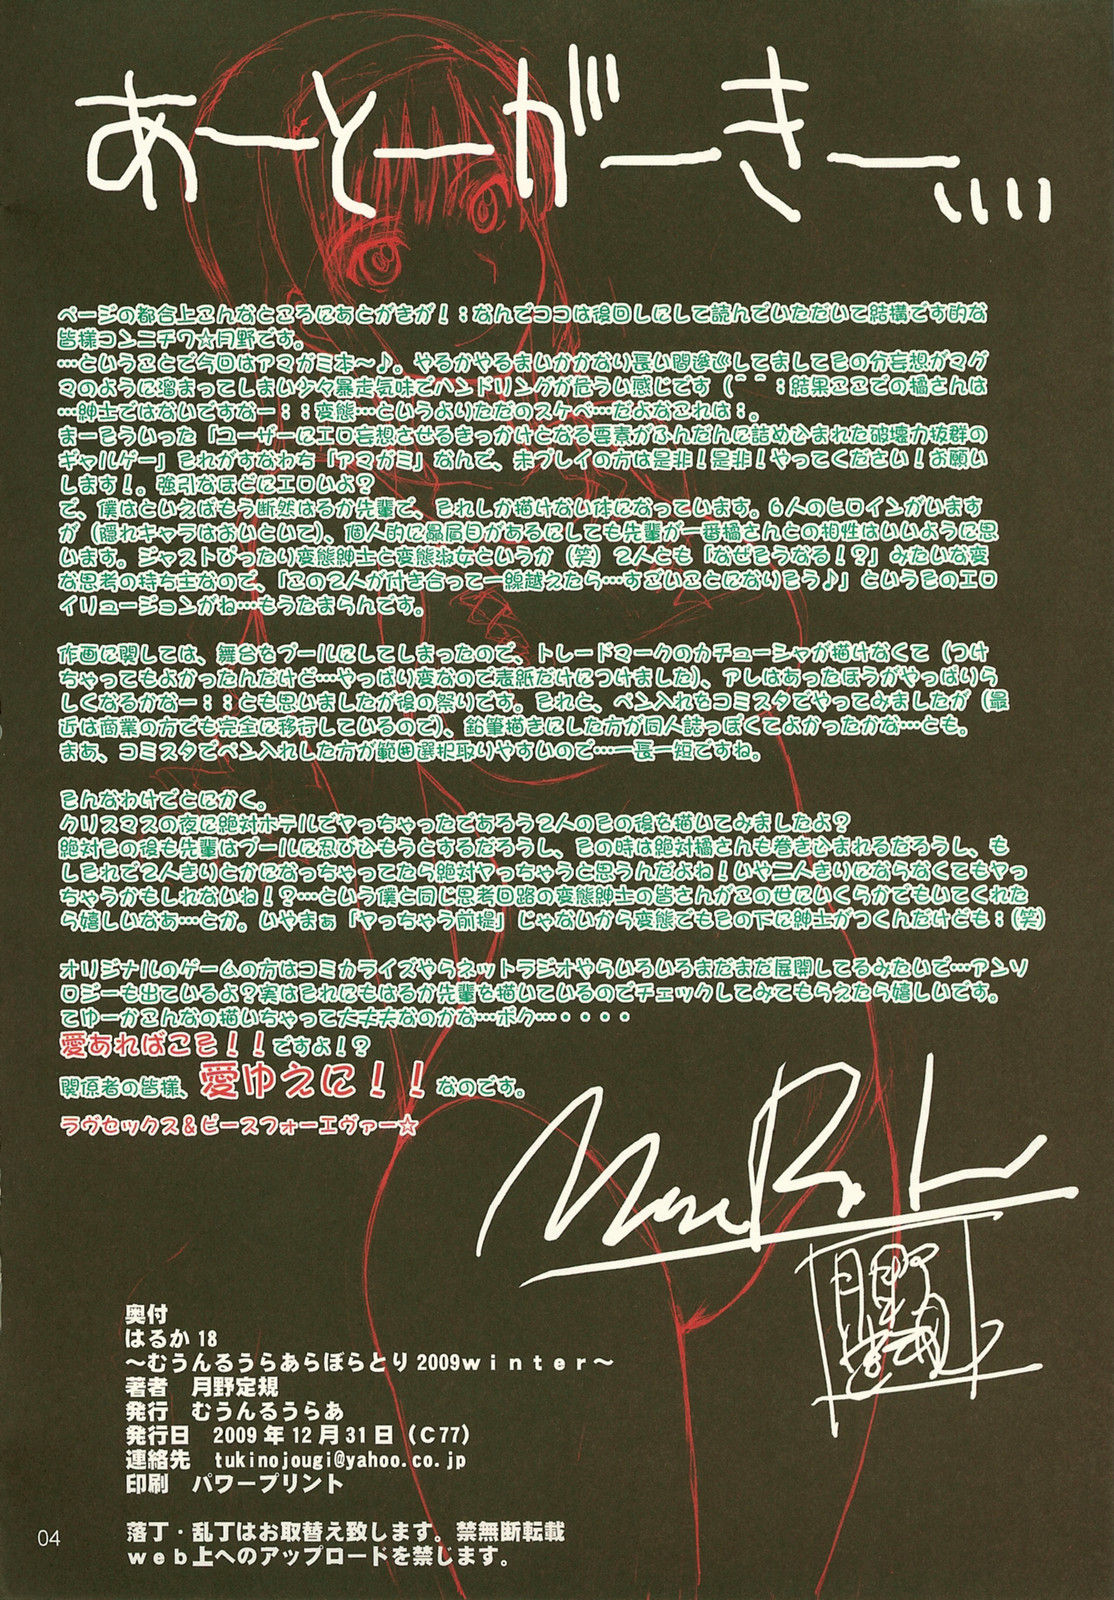 あーとーがーきー…
ページの都合上こんなところにあとがきが！：なんでココは後回しにして読んでいただいて結構です的な
皆様コンニチワ☆月野です。
…ということで今回はアマガミ本～♪。やるかやるまいかかなり長い間逡巡してましてその分妄想がマグ
マのように溜まってしまい少々暴走気味でハンドリングが危うい感じです（＾＾；結果ここでの橘さんは
…紳士ではないですなー：：変態…というよりただのスケベ…だよなこれは：。
まーそういった「ユーザーにエロ妄想させるきっかけとなる要素がふんだんに詰め込まれた破壊力抜群の
ギャルゲー」それがすなわち「アマガミ」なんで、未プレイの方は是非！是非！やってください！お願い
します！。強引なほどにエロいよ？
で、僕はといえばもう断然はるか先輩で、それしか描けない体になっています。6人のヒロインがいます
が（隠れキャラはおいといて）、個人的に贔屓目があるにしても先輩が一番橘さんとの相性はいいように思
います。ジャストぴったり変態紳士と変態淑女というか（笑）2人とも「なぜそうなる！？」みたいな変
な思考の持ち主なので、「この2人が付き合って一線越えたら…すごいことになりそう♪」というそのエロ
イリュージョンがね…もうたまらんです。
作画に関しては、舞台をプールにしてしまったので、トレードマークのカチューシャが描けなくて（つけ
ちゃってもよかったんだけど…やっぱり変なので表紙だけにつけました）、アレはあったほうがやっぱりら
しくなるかなー：：とも思いましたが後の祭りです。それと、ペン入れをコミスタでやってみましたが（最
近は商業の方でも完全に移行しているので）、鉛筆描きにした方が同人誌っぽくてよかったかな…とも。
まあ、コミスタでペン入れした方が範囲選択取りやすいので…一長一短ですね。
そんなわけでとにかく。
クリスマスの夜に絶対ホテルでヤっちゃったであろう2人のその後を描いてみましたよ？
絶対その後も先輩はプールに忍び込もうとするだろうし、その時は絶対橘さんも巻き込まれるだろうし、も
しそれで2人きりとかになっちゃってたら絶対ヤっちゃうと思うんだよね！いや二人きりにならなくてもヤっ
ちゃうかもしれないね！？…という僕と同じ思考回路の変態紳士の皆さんがこの世にいくらかでもいてくれた
ら嬉しいなあ…とか。いやまぁ「ヤっちゃう前提」じゃないから変態でもその下に紳士がつくんだけども：（笑）
オリジナルのゲームの方はコミカライズやらネットラジオやらいろいろまだまだ展開してるみたいで…アンソ
ロジーも出ているよ？実はそれにもはるか先輩を描いているのでチェックしてみてもらえたら嬉しいです。
てゆーかこんなの描いちゃって大丈夫なのかな…ボク…・・・・
愛あればこそ！！ですよ！？
関係者の皆様、愛ゆえに！！なのです。
ラヴセックス＆ピースフォーエヴァー☆
奥付
はるか18
～むうんるうらあらぼらとり2009winter～
著者　月野定規
発行　むうんるうらあ
発行日　2009年12月31日（C77）
連絡先　tukinojougi@yahoo.co.jp
印刷　パワープリント
落丁・乱丁はお取替え致します。禁無断転載
web上へのアップロードを禁じます。
04